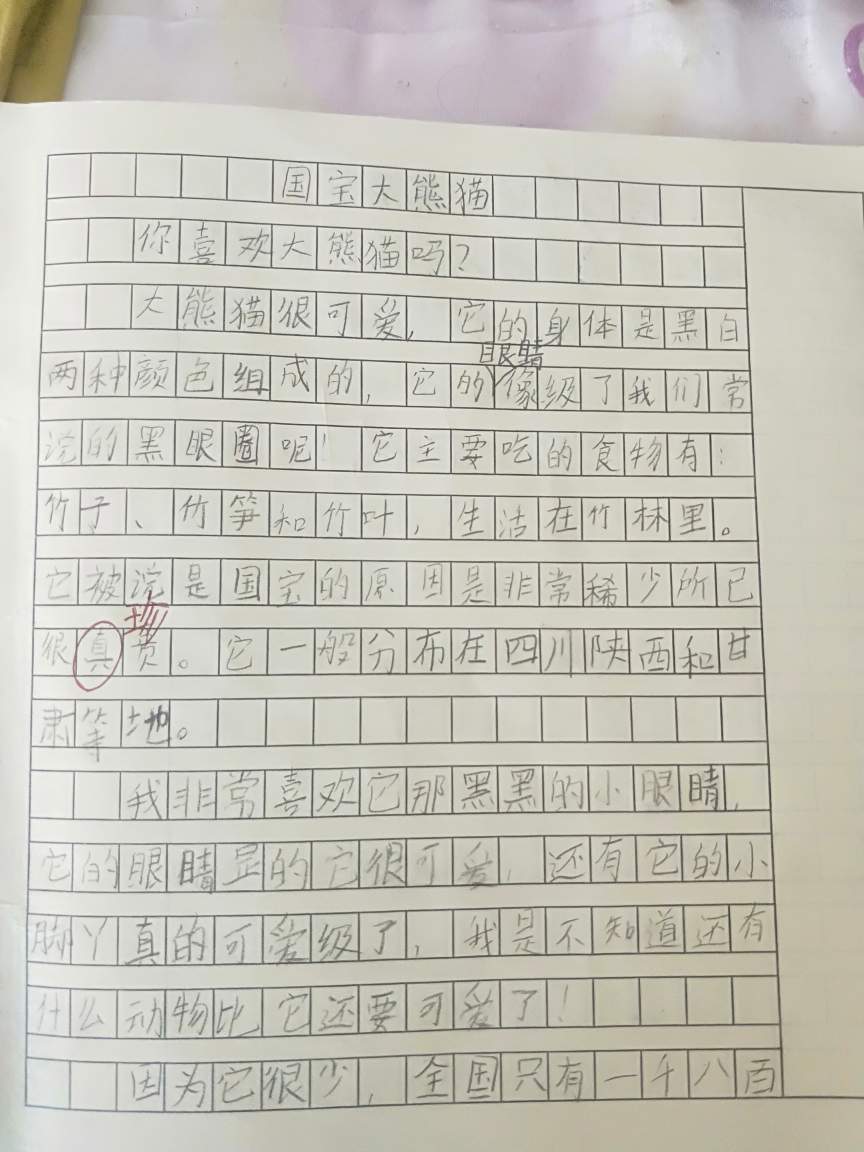 国宝大熊猫
你喜欢大熊猫吗?
大熊猫很可爱,它的身体是黑白
眼睛
两种颜色组成的,它的像级了我们常
说的黑眼圈呢!它主要吃的食物有:
竹子、竹笋和竹叶,生活在竹林里。
它被说是国宝的原因是非常稀少所已
珍
很真贵。它一般分布在四川陕西和甘
肃等地。
我非常喜欢它那黑黑的小眼睛,
它的眼睛显的它很可爱,还有它的小
脚丫真的可爱级了,我是不知道还有
什么动物比它还要可爱了!
因为它很少,全国只有一千八百